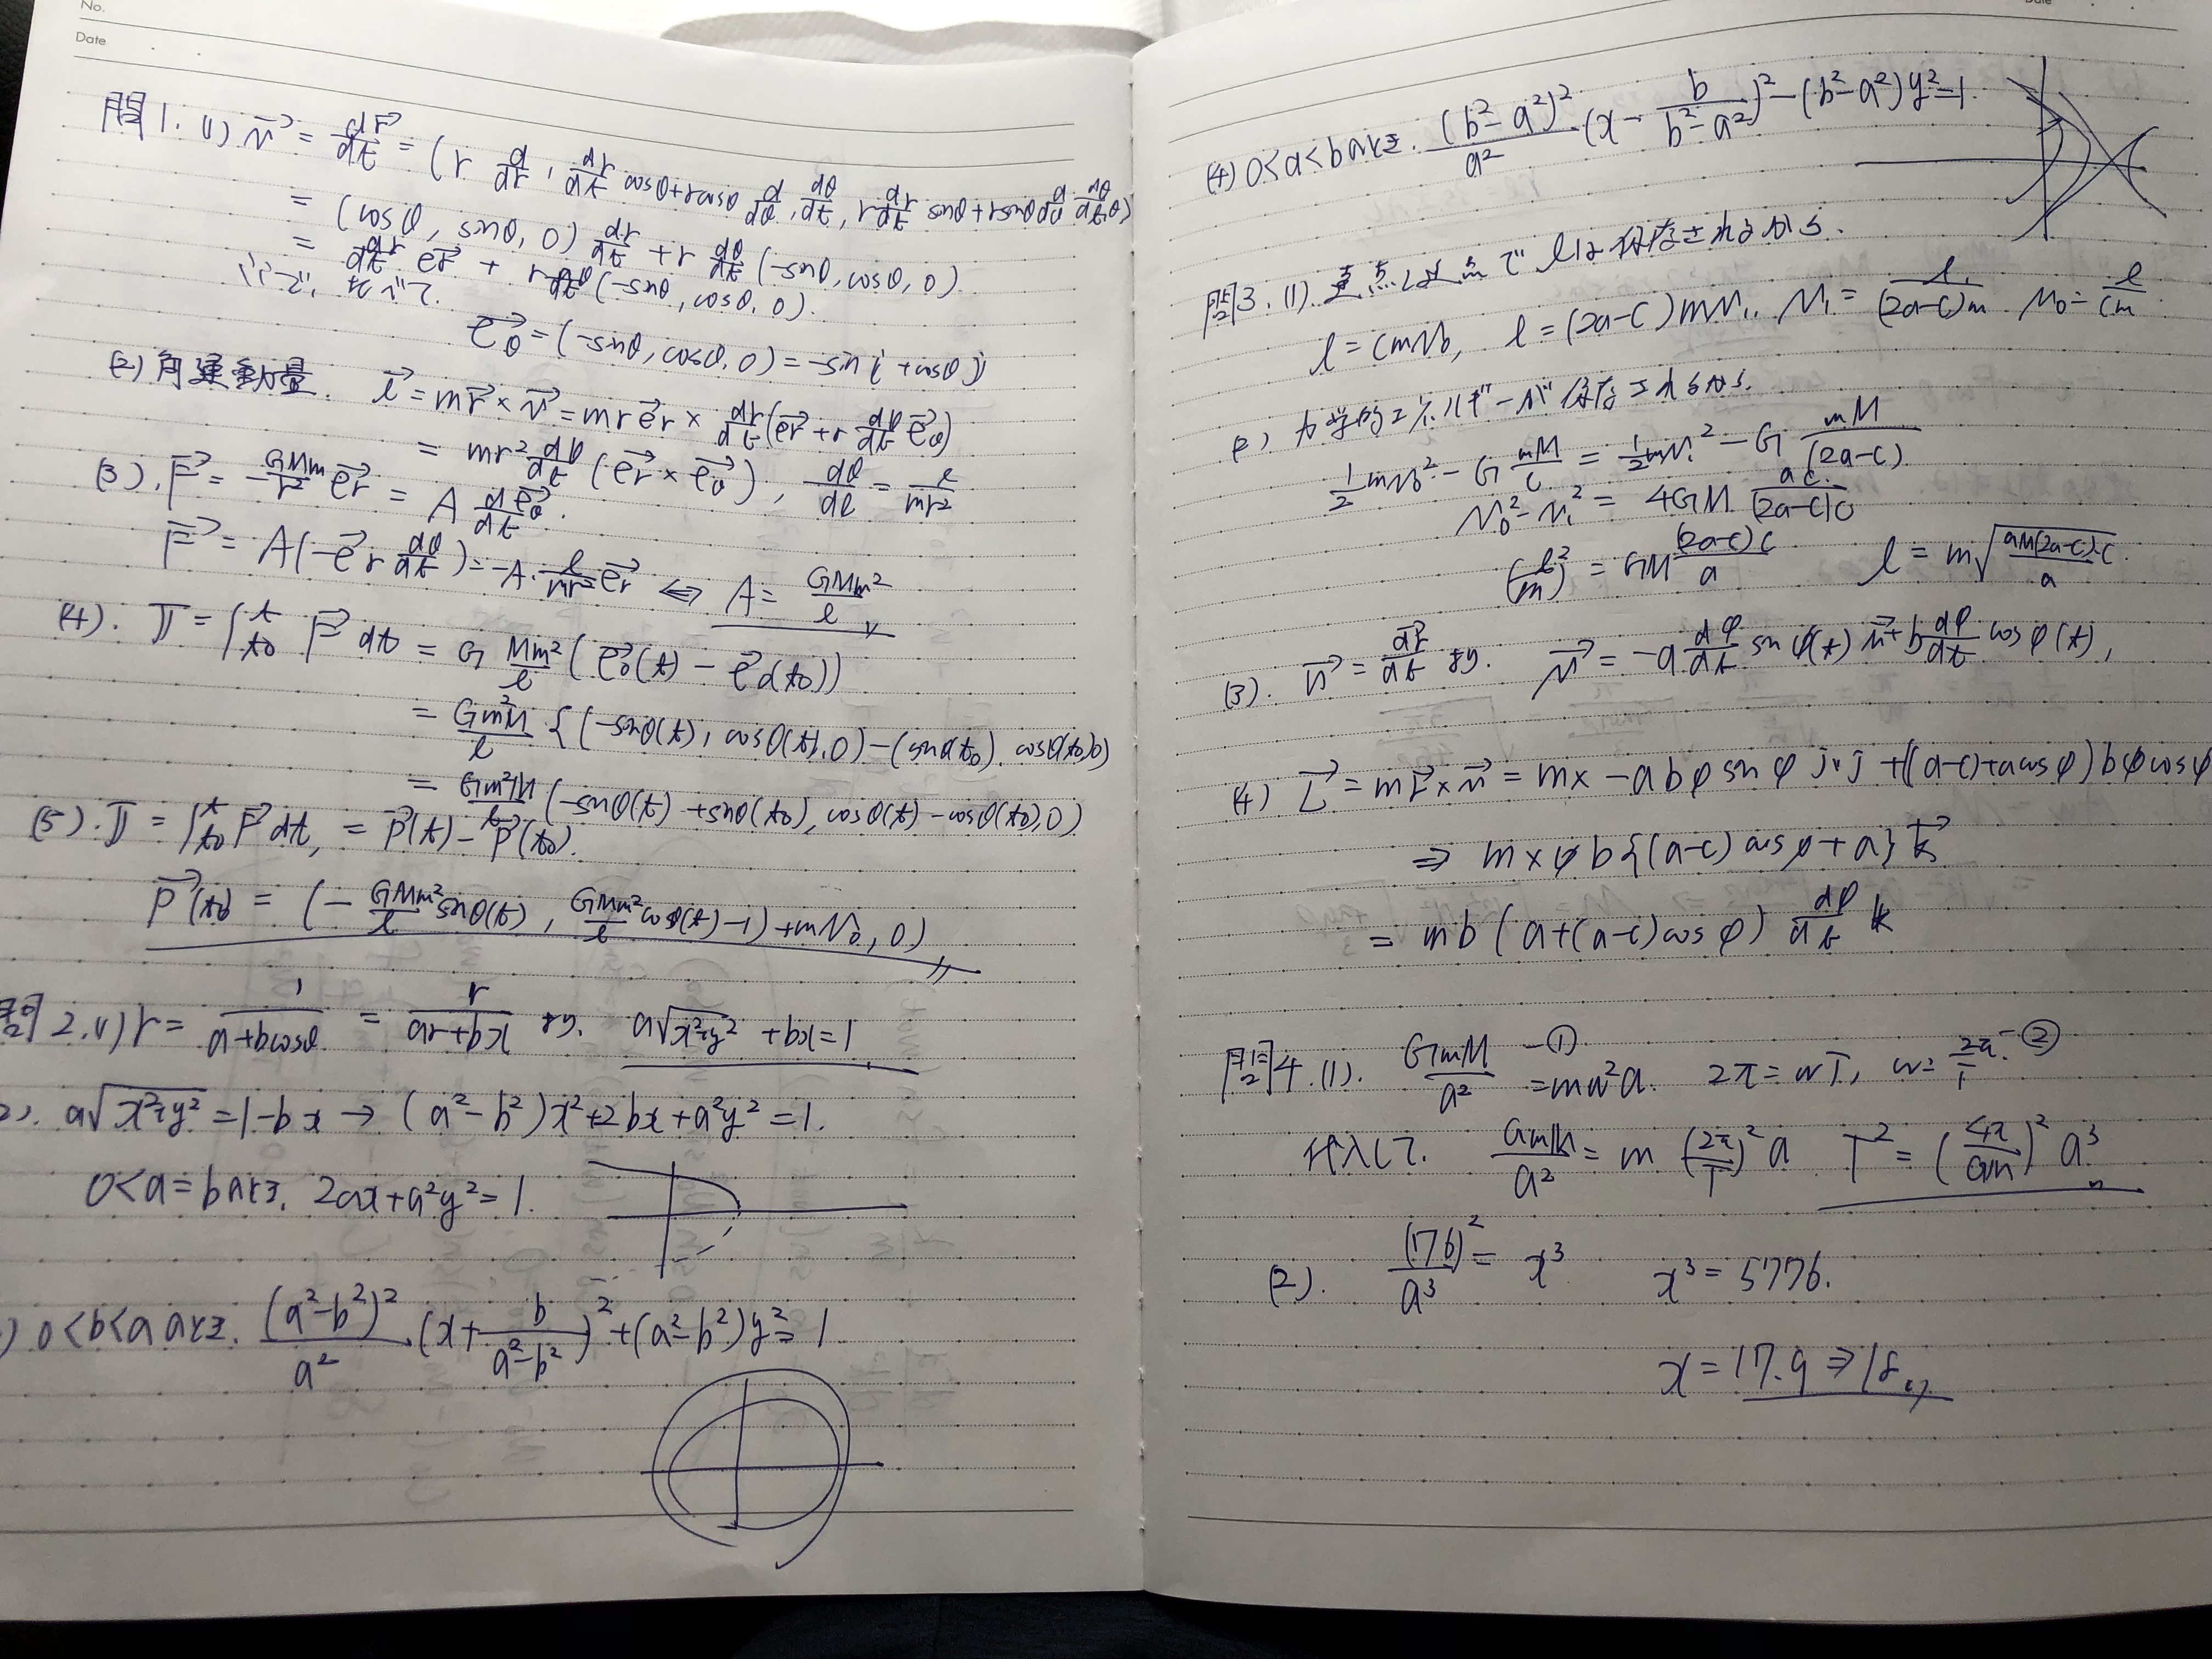 No.
Date
問1. (1) v⃗ = dr⃗/dt = (r d/dr, dr/dt cosθ+rcosθ d/dθ, dθ/dt, r dr/dt sinθ+rsinθ d/dθ dθ/dt, 0)
= (cosθ, sinθ, 0) dr/dt + r dθ/dt (-sinθ, cosθ, 0)
= dr/dt er⃗ + r dθ/dt (-sinθ, cosθ, 0).
eθ⃗ = (-sinθ, cosθ, 0) = -sin i + cosθ j
(2) 角運動量. l⃗ = mr⃗ × v⃗ = mr e⃗r × dr/dt (er⃗ + r dθ/dt e⃗θ)
= mr² dθ/dt (er⃗ × eθ⃗), dθ/dl = l/mr²
(3). F⃗ = -GMm/r² er⃗ = A deθ⃗/dt.
F⃗ = A(-e⃗r dθ/dt) = -A・l/mr² er⃗ ⇔ A = GMm²/l
(4). I = ∫t0^t F⃗ dt = G Mm²/l (eθ⃗(t) - e⃗θ(t0))
= Gm²M/l {(-sinθ(t), cosθ(t), 0) - (sinθ(t0), cosθ(t0), 0)
= Gm²M/l (-sinθ(t) + sinθ(t0), cosθ(t) - cosθ(t0), 0)
(5). I = ∫t0^t F⃗ dt, = P⃗(t) - P⃗(t0).
P⃗(t) = (-GMm²/l sinθ(t), GMm²/l cosθ(t) - 1) + mv0, 0)
問2. (1) r = 1/(a+bcosθ) = r/(ar+bx) より. a√(x²+y²) + bx = 1
2). a√(x²+y²) = 1-bx → (a²-b²)x² + 2bx + a²y² = 1.
0<a=bのとき. 2ax + a²y² = 1.
) 0<b<aのとき. (a²-b²)²/a² (x + b/(a²-b²))² + (a²-b²)y² = 1
(4) 0<a<bのとき. (b²-a²)²/a² (x - b/(b²-a²))² - (b²-a²)y² = 1.
問3. (1). でlは保存されるから.
l = cmv0, l = (2a-c)mv1. v1 = l/(2a-c)m v0 = l/cm
2) 力学的エネルギーが保存されるから.
1/2 mv0² - G mM/c = 1/2 mv1² - G mM/(2a-c)
v0² - v1² = 4GM ac/(2a-c)c
(l/m)² = GM (2a-c)c/a l = m√(GM(2a-c)c/a).
(3). v⃗ = dr⃗/dt より. v⃗ = -a dφ/dt sinφ(t) + b dφ/dt cosφ(t),
(4) L⃗ = mr⃗ × v⃗ = m× -abφ sinφ j×j + ((a-c)+acosφ)bφcosφ
⇒ m×φb{(a-c)cosφ+a} k⃗
= mb(a+(a-c)cosφ) dφ/dt k
問4. (1). GmM/a² = mω²a. -① 2π = ωT, ω = 2π/T -②
代入して. GmM/a² = m (2π/T)² a T² = (4π/GM)² a³
(2). (176)²/a³ = x³ x³ = 5776.
x = 17.9 ⇒ 18